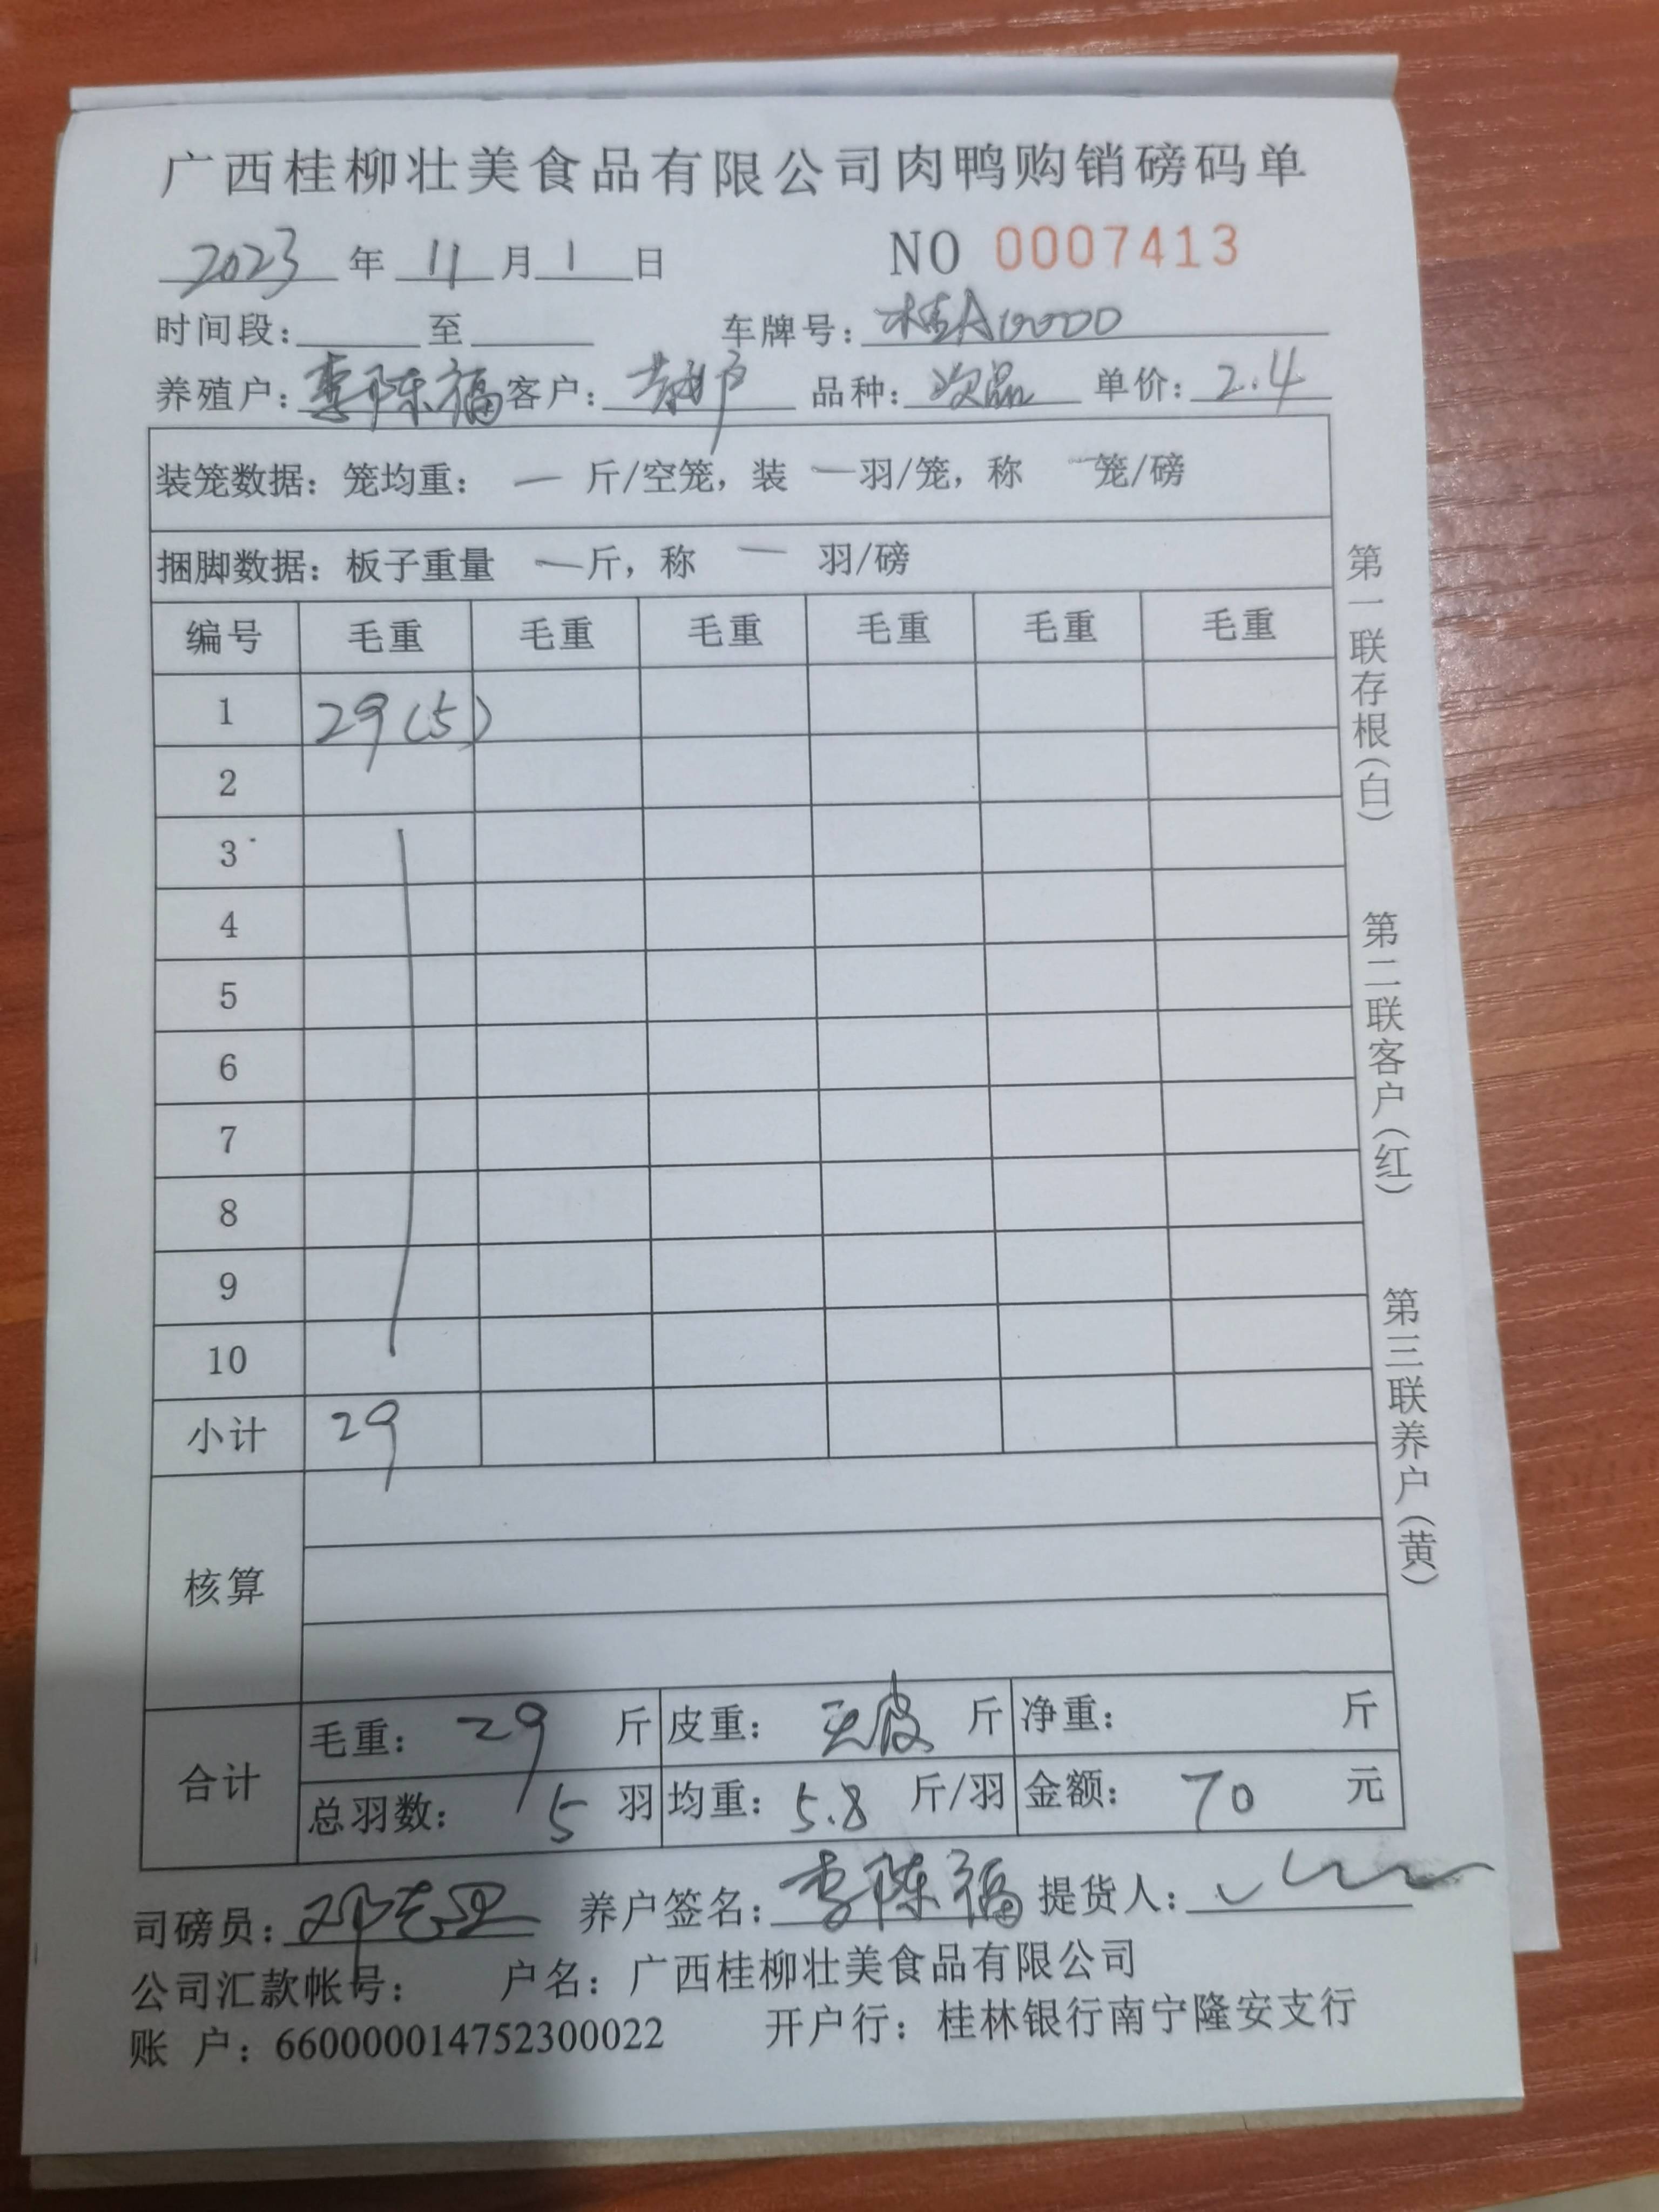 广西桂柳壮美食品有限公司肉鸭购销磅码单
2023 年 11 月 1 日 NO 0007413
时间段: 至 车牌号: 桂A00000
养殖户: 李陈福 客户: 散户 品种: 次品 单价: 2.4
装笼数据: 笼均重: — 斤/空笼, 装 — 羽/笼, 称 — 笼/磅
捆脚数据: 板子重量 — 斤, 称 — 羽/磅
编号 毛重 毛重 毛重 毛重 毛重 毛重
1 29(5)
2
3
4
5
6
7
8
9
10
小计 29
核算
合计
毛重: 29 斤 皮重: 无皮 斤 净重: 斤
总羽数: 5 羽 均重: 5.8 斤/羽 金额: 70 元
司磅员: 养户签名: 李陈福 提货人:
公司汇款帐号: 户名: 广西桂柳壮美食品有限公司
账 户: 660000014752300022 开户行: 桂林银行南宁隆安支行
第一联存根(白)
第二联客户(红)
第三联养户(黄)